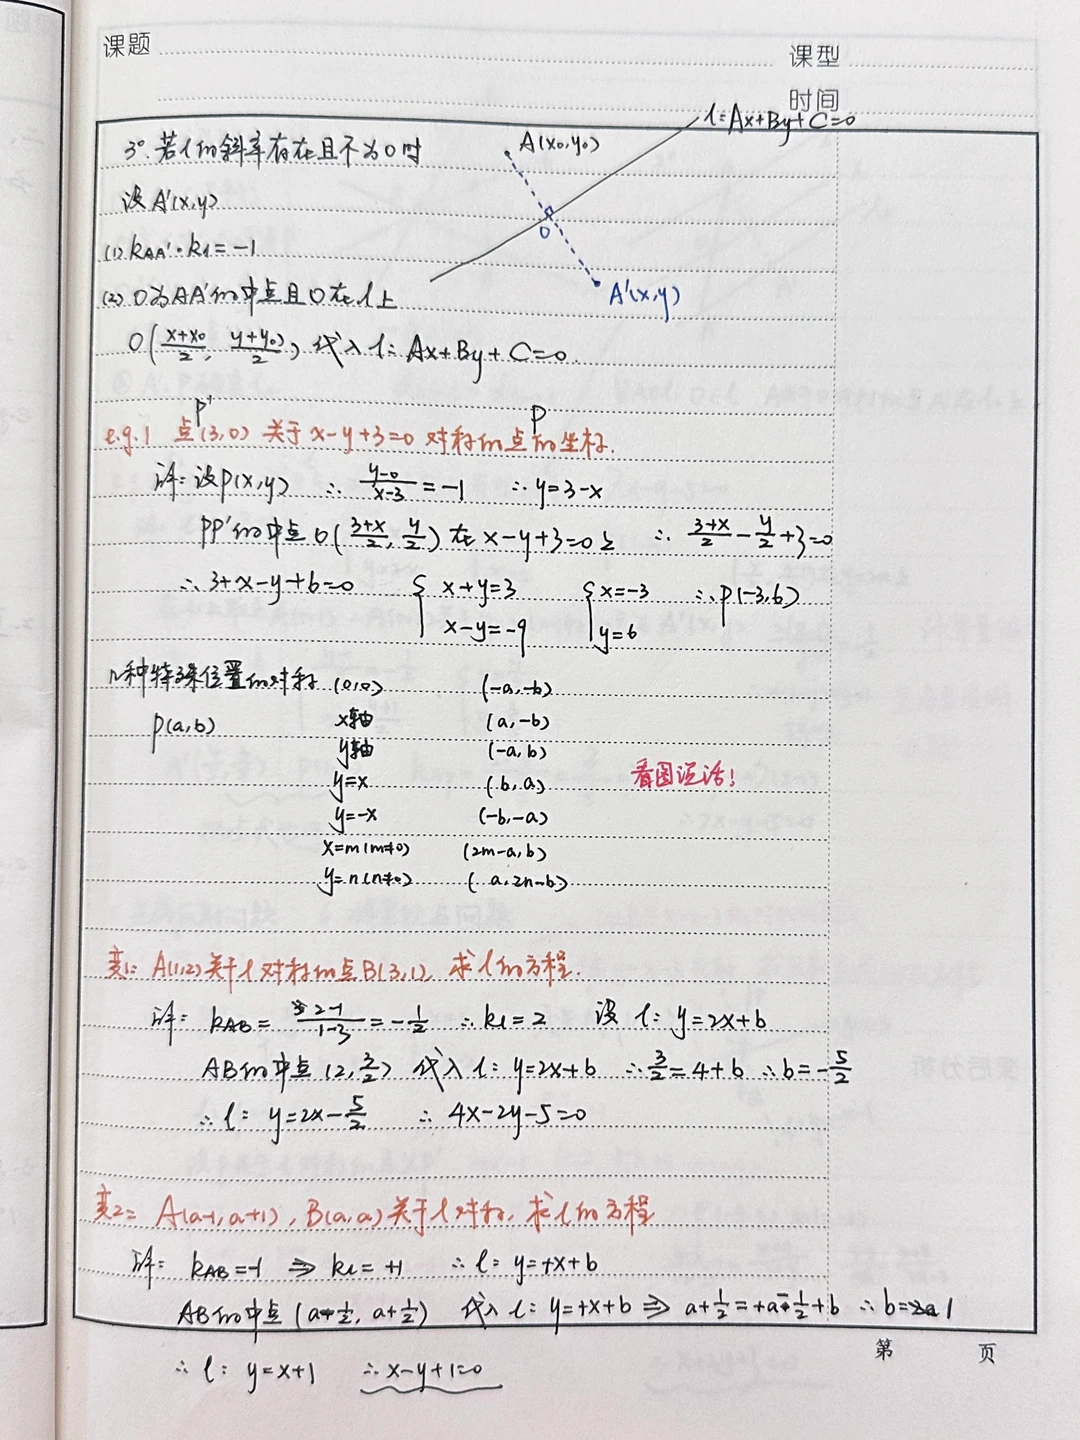 课题
课型
时间
l=Ax+By+C=0
A(x₀,y₀)
3°. 若l的斜率存在且不为0时
设A'(x,y)
(1) kAA'·kl=-1
O
A'(x,y)
(2) O为AA'的中点且O在l上
O(x+x₀/2, y+y₀/2) 代入l: Ax+By+C=0.
P'
P
e.g.1 点(3,0)关于x-y+3=0对称的点的坐标.
详: 设P(x,y) ∴ y-0/x-3=-1 ∴y=3-x
PP'的中点O(3+x/2, y/2)在x-y+3=0上 ∴ 3+x/2-y/2+3=0
∴3+x-y+6=0 { x+y=3 { x=-3 ∴P(-3,6)
x-y=-9 y=6
几种特殊位置的对称 (0,0) (-a,-b)
P(a,b) x轴 (a,-b)
y轴 (-a,b)
y=x (b,a) 看图说话!
y=-x (-b,-a)
x=m(m≠0) (2m-a,b)
y=n(n≠0) (a,2n-b)
变1: A(1,2)关于l对称的点B(3,1), 求l的方程.
详: kAB=2-1/1-3=-1/2 ∴kl=2 设l: y=2x+b
AB的中点(2,3/2) 代入l: y=2x+b ∴3/2=4+b ∴b=-5/2
∴l: y=2x-5/2 ∴4x-2y-5=0
变2: A(a-1,a+1), B(a,a)关于l对称, 求l的方程
详: kAB=-1 ⇒ kl=+1 ∴l: y=+x+b
AB的中点(a-1/2, a+1/2) 代入l: y=+x+b ⇒ a+1/2=+a-1/2+b ∴b=1
∴l: y=x+1 ∴x-y+1=0
第 页